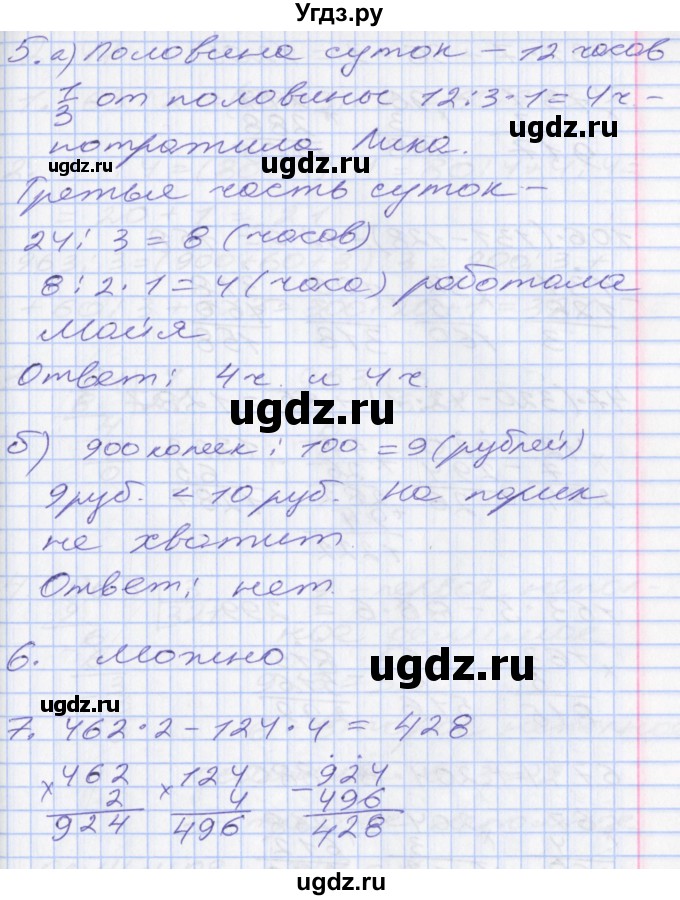 Угдз.ру
5. а) Половина суток – 12 часов
1/3 от половины 12:3·1=4ч.–
потратила Лика.
ugdz.ru ugdz.ru
Третья часть суток –
24:3=8 (часов)
ugdz.ru
8:2·1=4 (часа) работала
Майя
Ответ: 4ч. и 4ч.
ugdz.ru
б) 900 копеек : 100 = 9 (рублей)
9руб. < 10 руб. На парик
не хватит.
ugdz.ru
Ответ: нет.
6. Можно
ugdz.ru
ugdz.ru
7. 462·2–124·4= 428
× 462 × 124 – 924
2 4 496
924 496 428
ugdz.ru